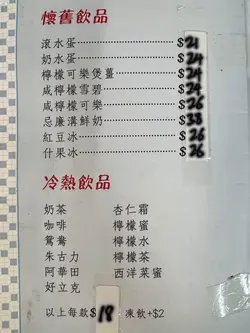 懷舊飲品
滾水蛋 $21
奶水蛋 $24
檸檬可樂煲薑 $24
咸檸檬雪碧 $24
咸檸檬可樂 $26
忌廉溝鮮奶 $38
紅豆冰 $26
什果冰 $26
冷熱飲品
奶茶 杏仁霜
咖啡 檸檬蜜
鴛鴦 檸檬水
朱古力 檸檬茶
阿華田 西洋菜蜜
好立克
以上每款$18 凍飲+$2